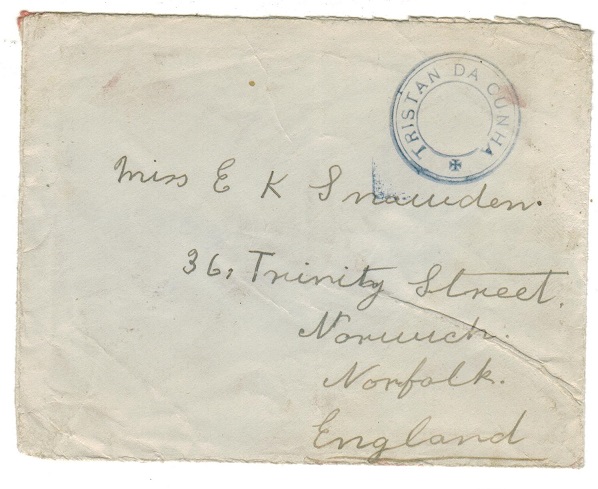 TRISTAN DA CUNHA
Miss E K Snowden.
36, Trinity Street.
Norwich.
Norfolk.
England